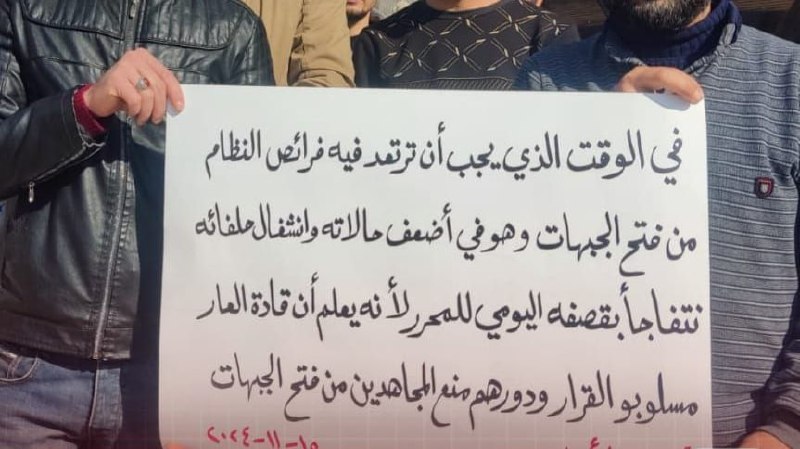 في الوقت الذي يجب أن ترتعد فيه فرائص النظام
من فتح الجبهات وهو في أضعف حالاته وانشغال حلفائه
نتفاجأ بقصفه اليومي للمحرر لأنه يعلم أن قادة العار
مسلوبو القرار ودورهم منع المجاهدين من فتح الجبهات
١٥-١١-٢٠٢٤